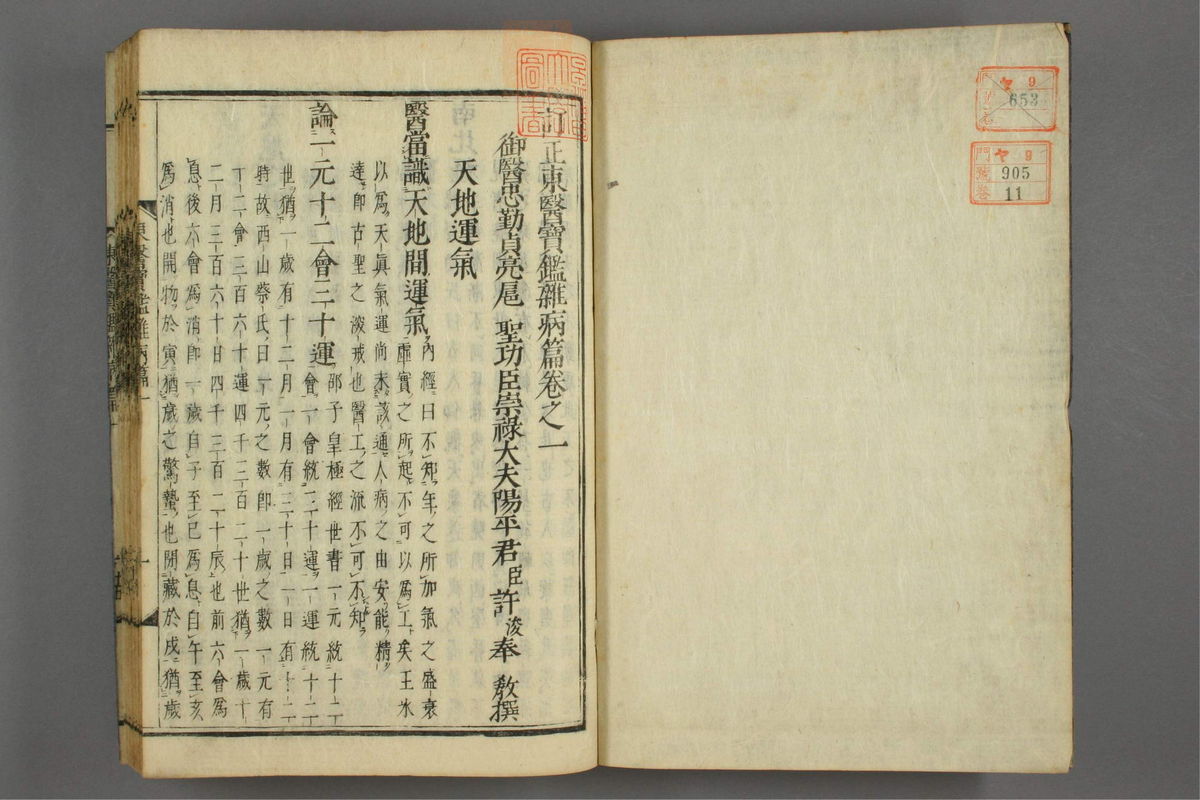 ヤ9
653
門
號
卷
ヤ9
905
11
訂正東醫寶鑑雜病篇卷之一
御醫忠勤貞亮扈聖功臣崇祿大夫陽平君臣許浚奉教撰
天地運氣
醫當識天地間運氣
內經曰不知年之所加氣之盛衰
虛實之所起不可以爲工矣王氷
以爲天眞氣運尙未該通人病之由安能精
達卽古聖之深戒也醫工之流不可不知
論一元十二會三十運
邵子皇極經世書一元統十二
會一會統三十運一運統十二
世猶一歲有十二月一月有三十日一日有十二
時故西山蔡氏曰一元之數卽一歲之數一元有
十二會三百六十運四千三百二十世猶一歲十
二月三百六十日四千三百二十辰也前六會爲
息後六會爲消卽一歲自子至巳爲息自午至亥
爲消也開物於寅猶歲之驚蟄也閉藏於戌猶歲
東醫寶鑑雜病篇一
一